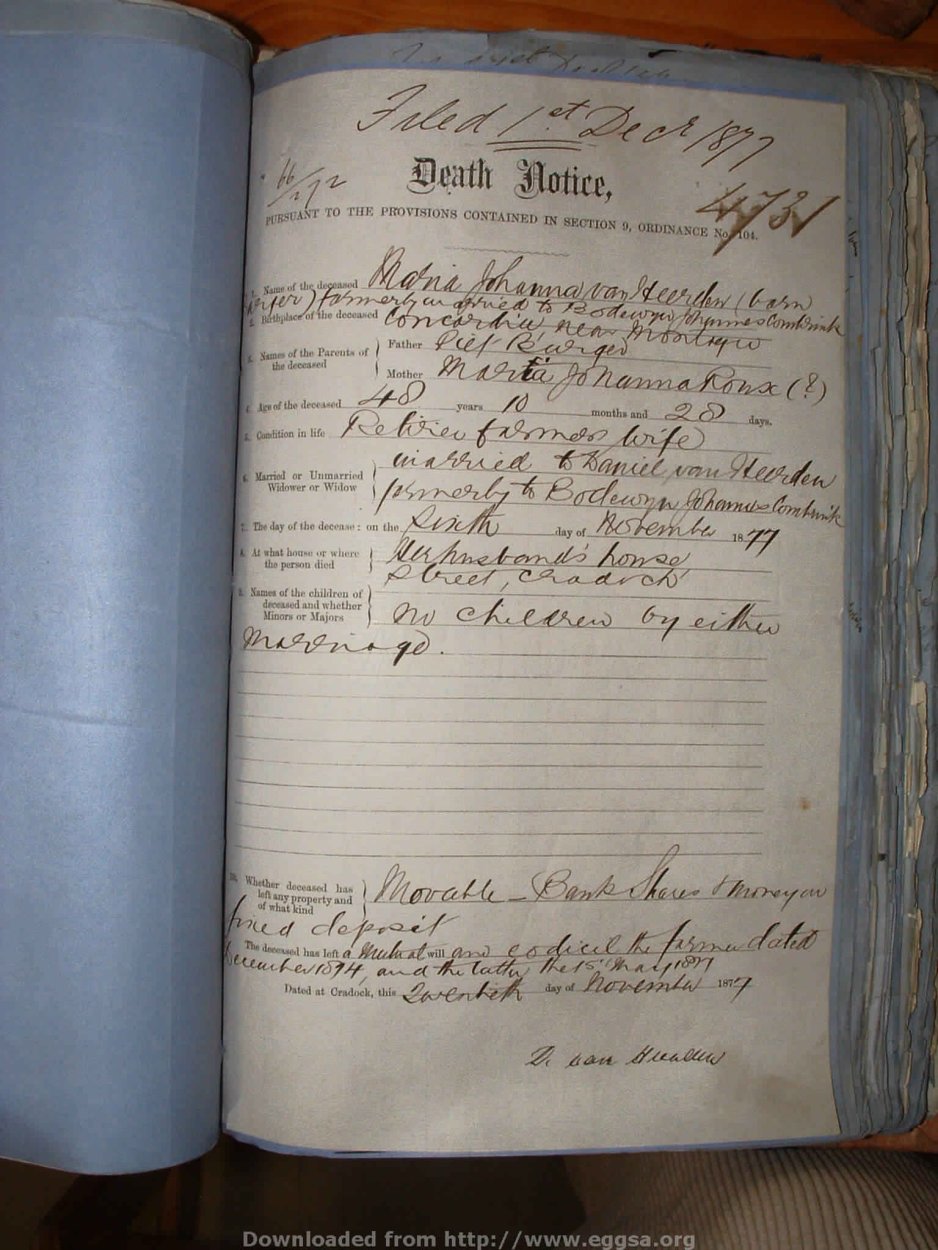 Filed 1st Decr 1877
Death Notice,
4731
PURSUANT TO THE PROVISIONS CONTAINED IN SECTION 9, ORDINANCE No. 104.
1. Name of the deceased Maria Johanna van Heerden (born
formerly married to Bodewyn Johannes Combrink
2. Birthplace of the deceased Concordia near Montagu
3. Names of the Parents of the deceased
Father Piet Burger
Mother Maria Johanna Roux (?)
4. Age of the deceased 48 years 10 months and 28 days.
5. Condition in life Retired farmers wife
6. Married or Unmarried Widower or Widow
married to Daniel van Heerden
formerly to Bodewyn Johannes Combrink
7. The day of the decease: on the Sixth day of November 1877
8. At what house or where the person died
Her husband's house,
Street, Cradock
9. Names of the children of deceased and whether Minors or Majors
no children by either
marriage.
10. Whether deceased has left any property and of what kind
Movable – Bank Shares & money on
fixed deposit
The deceased has left a Mutual will and codicil the former dated
December and the latter the 15th May 1877
Dated at Cradock, this Twentieth day of November 1877
D. van Heerden
Downloaded from http://www.eggsa.org